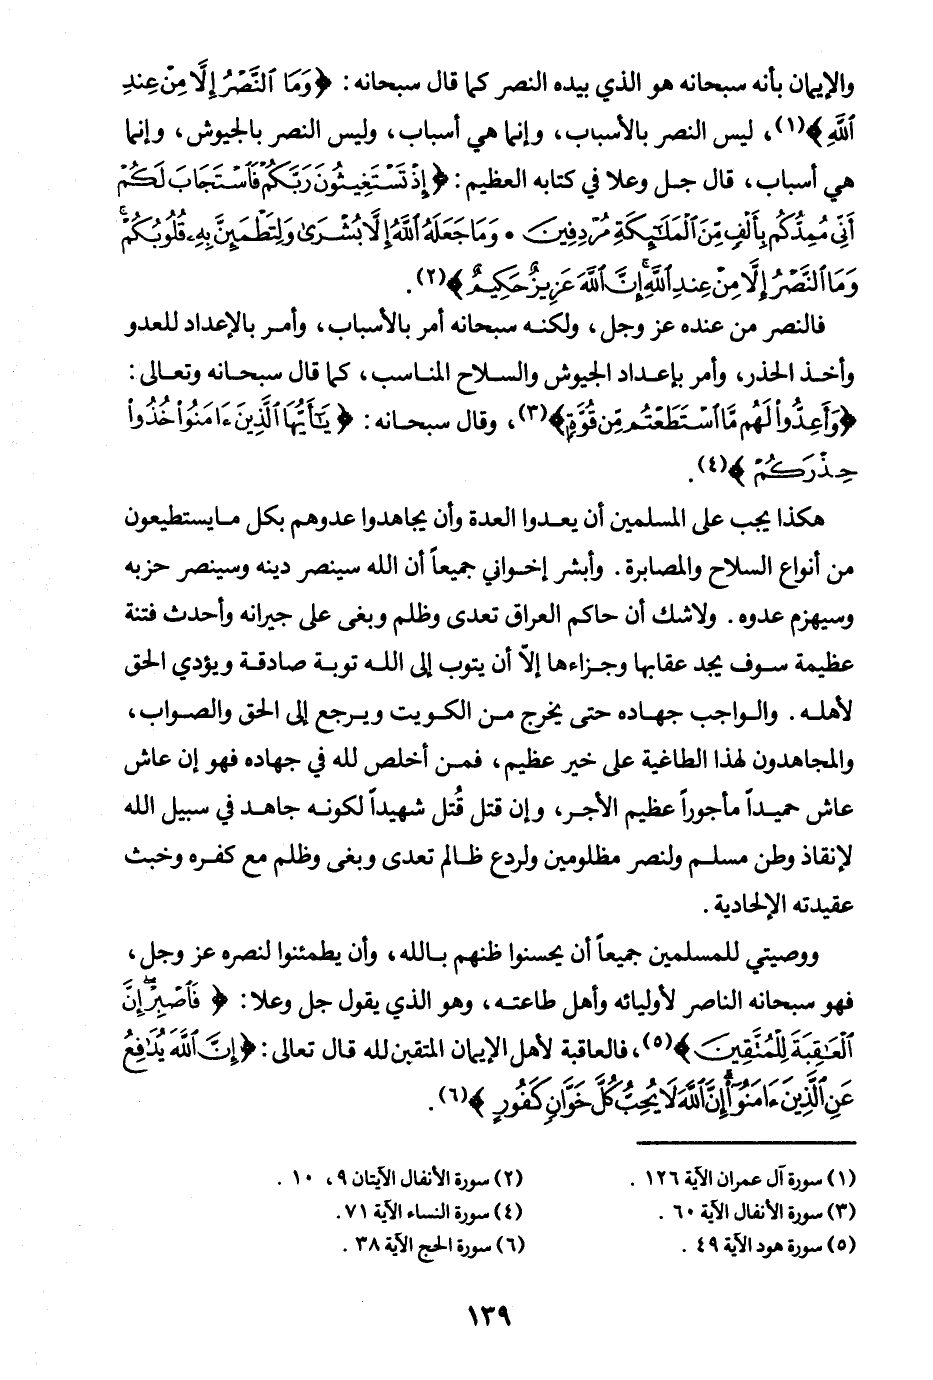 والإيمان بأنه سبحانه هو الذي بيده النصر كما قال سبحانه : ﴿ وَمَا ٱلنَّصْرُ إِلَّا مِنْ عِندِ
ٱللَّهِ ﴾(١)، ليس النصر بالأسباب، وإنما هي أسباب، وليس النصر بالجيوش، وإنما
هي أسباب، قال جل وعلا في كتابه العظيم : ﴿ إِذْ تَسْتَغِيثُونَ رَبَّكُمْ فَٱسْتَجَابَ لَكُمْ
أَنِّي مُمِدُّكُم بِأَلْفٍ مِّنَ ٱلْمَلَٰٓئِكَةِ مُرْدِفِينَ • وَمَا جَعَلَهُ ٱللَّهُ إِلَّا بُشْرَىٰ وَلِتَطْمَئِنَّ بِهِۦ قُلُوبُكُمْ ۚ
وَمَا ٱلنَّصْرُ إِلَّا مِنْ عِندِ ٱللَّهِ ۚ إِنَّ ٱللَّهَ عَزِيزٌ حَكِيمٌ ﴾(٢).
فالنصر من عنده عز وجل، ولكنه سبحانه أمر بالأسباب، وأمر بالإعداد للعدو
وأخذ الحذر، وأمر بإعداد الجيوش والسلاح المناسب، كما قال سبحانه وتعالى :
﴿وَأَعِدُّوا۟ لَهُم مَّا ٱسْتَطَعْتُم مِّن قُوَّةٍ﴾(٣)، وقال سبحانه : ﴿ يَٰٓأَيُّهَا ٱلَّذِينَ ءَامَنُوا۟ خُذُوا۟
حِذْرَكُمْ ﴾(٤).
هكذا يجب على المسلمين أن يعدوا العدة وأن يجاهدوا عدوهم بكل مايستطيعون
من أنواع السلاح والمصابرة . وأبشر إخواني جميعاً أن الله سينصر دينه وسينصر حزبه
وسيهزم عدوه . ولاشك أن حاكم العراق تعدى وظلم وبغى على جيرانه وأحدث فتنة
عظيمة سوف يجد عقابها وجزاءها إلاّ أن يتوب إلى الله توبة صادقة ويؤدي الحق
لأهله . والواجب جهاده حتى يخرج من الكويت ويرجع إلى الحق والصواب،
والمجاهدون لهذا الطاغية على خير عظيم، فمن أخلص لله في جهاده فهو إن عاش
عاش حميداً مأجوراً عظيم الأجر، وإن قتل قُتل شهيداً لكونه جاهد في سبيل الله
لإنقاذ وطن مسلم ولنصر مظلومين ولردع ظالم تعدى وبغى وظلم مع كفره وخبث
عقيدته الإلحادية .
ووصيتي للمسلمين جميعاً أن يحسنوا ظنهم بالله، وأن يطمئنوا لنصره عز وجل،
فهو سبحانه الناصر لأوليائه وأهل طاعته، وهو الذي يقول جل وعلا : ﴿ فَٱصْبِرْ ۖ إِنَّ
ٱلْعَٰقِبَةَ لِلْمُتَّقِينَ ﴾(٥)، فالعاقبة لأهل الإيمان المتقين لله قال تعالى : ﴿ إِنَّ ٱللَّهَ يُدَٰفِعُ
عَنِ ٱلَّذِينَ ءَامَنُوٓا۟ ۗ إِنَّ ٱللَّهَ لَا يُحِبُّ كُلَّ خَوَّانٍ كَفُورٍ ﴾(٦).
(١) سورة آل عمران الآية ١٢٦ .
(٢) سورة الأنفال الآيتان ٩، ١٠ .
(٣) سورة الأنفال الآية ٦٠ .
(٤) سورة النساء الآية ٧١.
(٥) سورة هود الآية ٤٩ .
(٦) سورة الحج الآية ٣٨ .
١٣٩